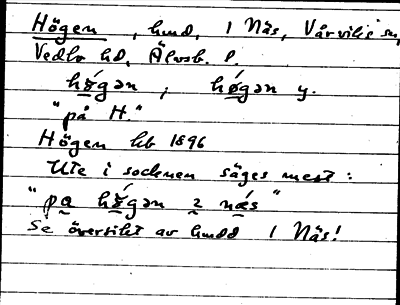 Högen, hmd, 1 Näs, Vårvik sn,
Vedbo hd, Älvsb. l.
hǿgən ; hǿgən y.
"på H."
Högen hb 1896
Ute i socknen säges mest:
"pa hǿgən 2 næs"
Se översikt av hmdd 1 Näs!